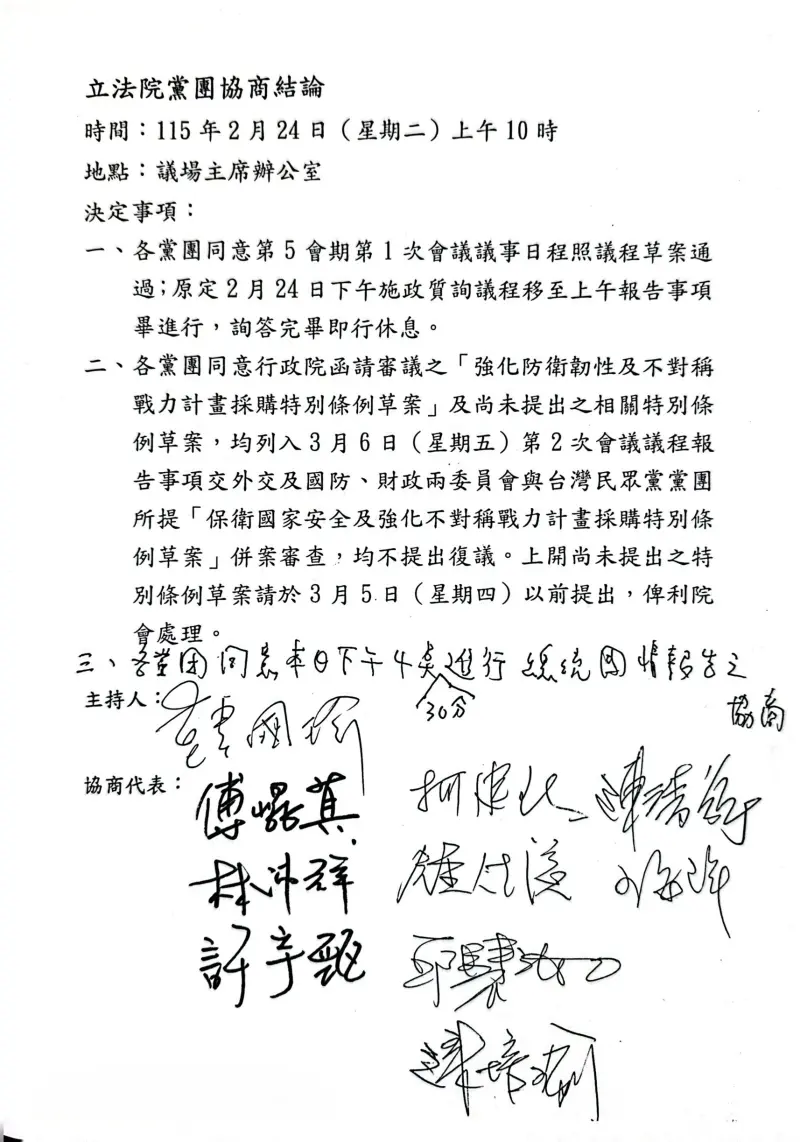 立法院黨團協商結論
時間：115 年 2 月 24 日（星期二）上午 10 時
地點：議場主席辦公室
決定事項：
一、各黨團同意第 5 會期第 1 次會議議事日程照議程草案通
過；原定 2 月 24 日下午施政質詢議程移至上午報告事項
畢進行，詢答完畢即行休息。
二、各黨團同意行政院函請審議之「強化防衛韌性及不對稱
戰力計畫採購特別條例草案」及尚未提出之相關特別條
例草案，均列入 3 月 6 日（星期五）第 2 次會議議程報
告事項交外交及國防、財政兩委員會與台灣民眾黨黨團
所提「保衛國家安全及強化不對稱戰力計畫採購特別條
例草案」併案審查，均不提出復議。上開尚未提出之特
別條例草案請於 3 月 5 日（星期四）以前提出，俾利院
會處理。
三、各党团同意本日下午4点進行總統國情報告之
30分
協商
主持人：
韓國瑜
協商代表：
傅崐萁
柯建銘
陳清龍
林沛祥
鍾佳濱
許宇甄